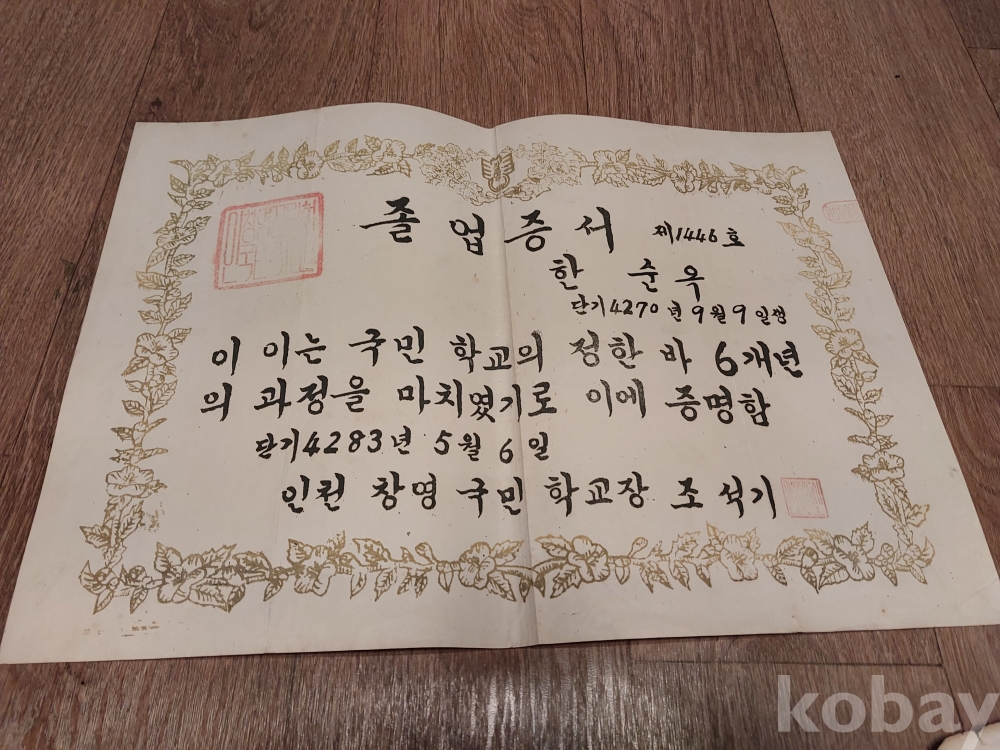 졸업증서 제1446호
한순옥
단기4270년9월9일생
이 이는 국민학교의 정한 바 6개년
의 과정을 마치였기로 이에 증명함
단기4283년 5월 6일
인천 창영 국민학교장 조석기
kobay